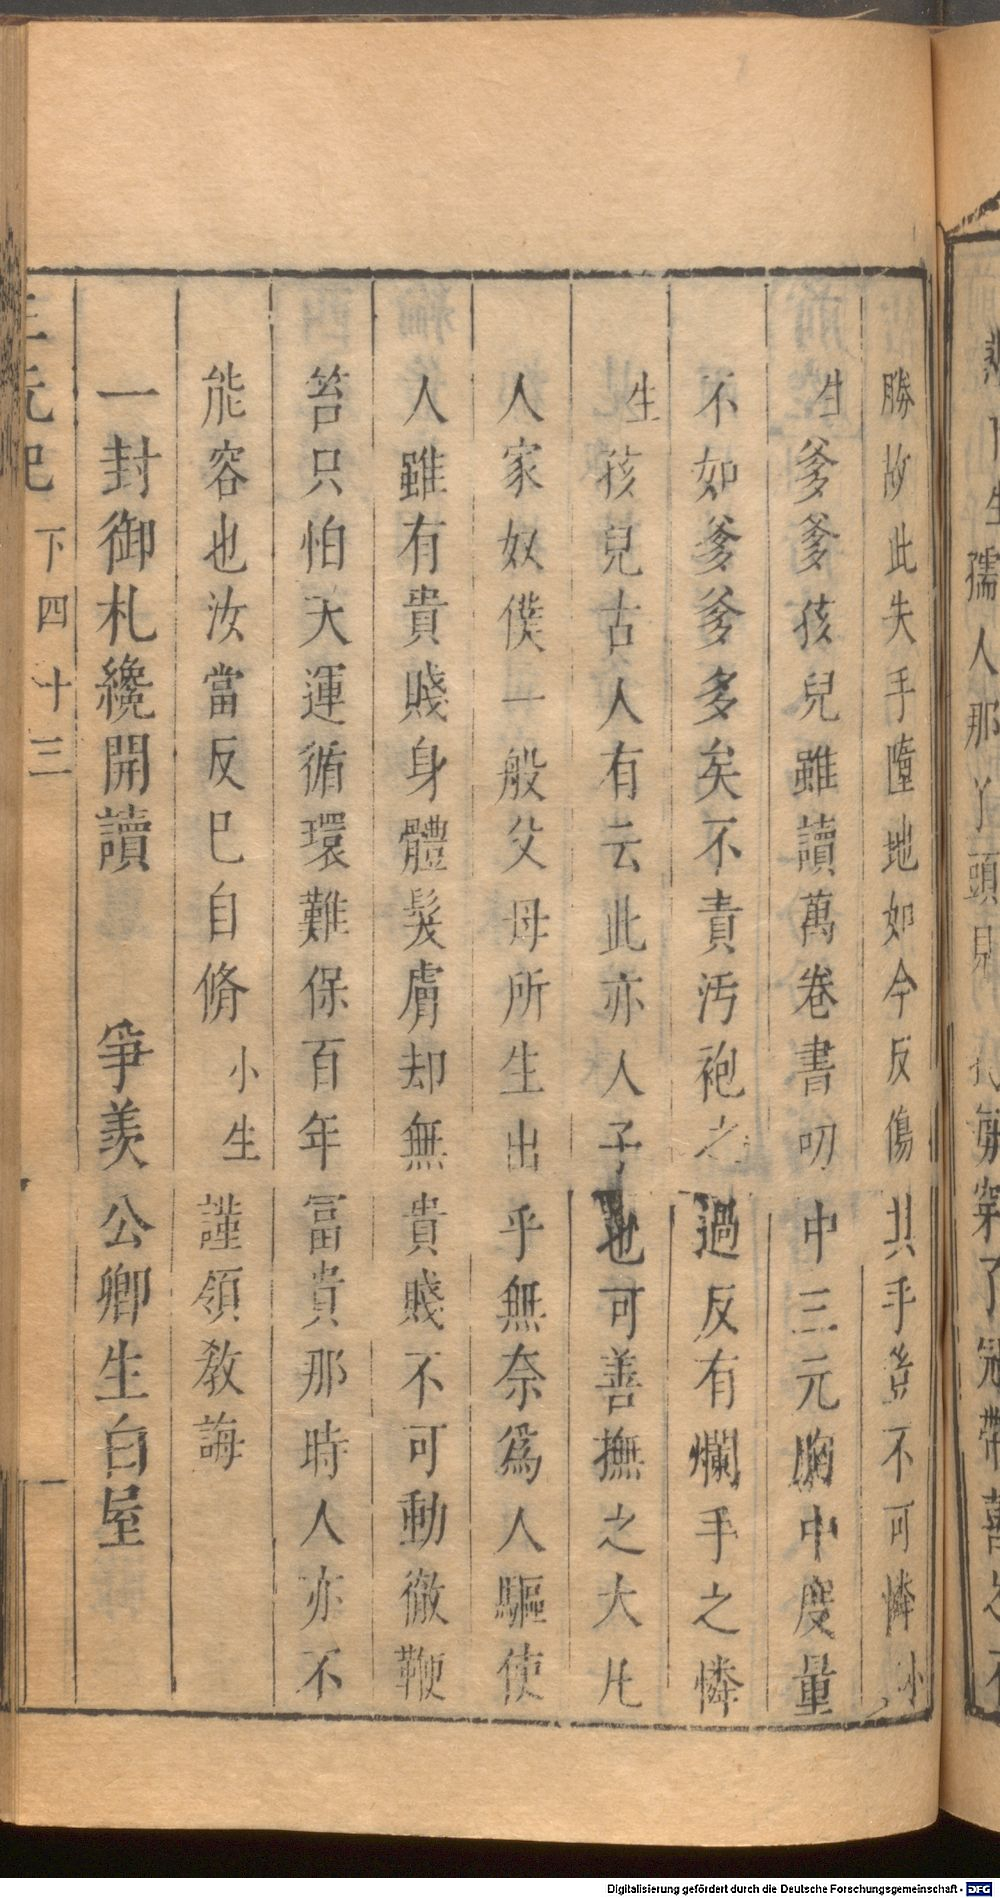 勝故此失手墮地如今反傷其手豈不可憐小
生爹爹孩兒雖讀萬卷書叨中三元胸中度量
不如爹爹多矣不責汚袍之過反有爛手之憐
生孩兒古人有云此亦人子也可善撫之大凡
人家奴僕一般父母所生出乎無奈爲人驅使
人雖有貴賤身體髮膚却無貴賤不可動徹鞭
笞只怕天運循環難保百年冨貴那時人亦不
能容也汝當反巳自脩小生謹領敎誨
一封御札纔開讀　爭羡公卿生白屋
三元記　下四十三
Digitalisierung gefördert durch die Deutsche Forschungsgemeinschaft - DFG